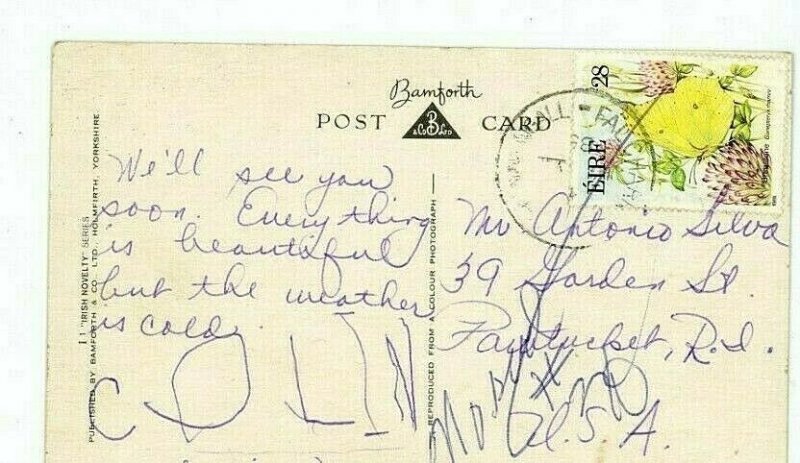 Bamforth
POST CARD
B
& Co LTD
28
ÉIRE
We'll see you
soon. Everything
is beautiful
but the weather
is cold.
COLIN
Mr Antonio Silva
39 Garden St.
Pawtucket, R.I.
U.S.A.
11 "IRISH NOVELTY" SERIES
PUBLISHED BY BAMFORTH & CO LTD. HOLMFIRTH, YORKSHIRE
REPRODUCED FROM A COLOUR PHOTOGRAPH